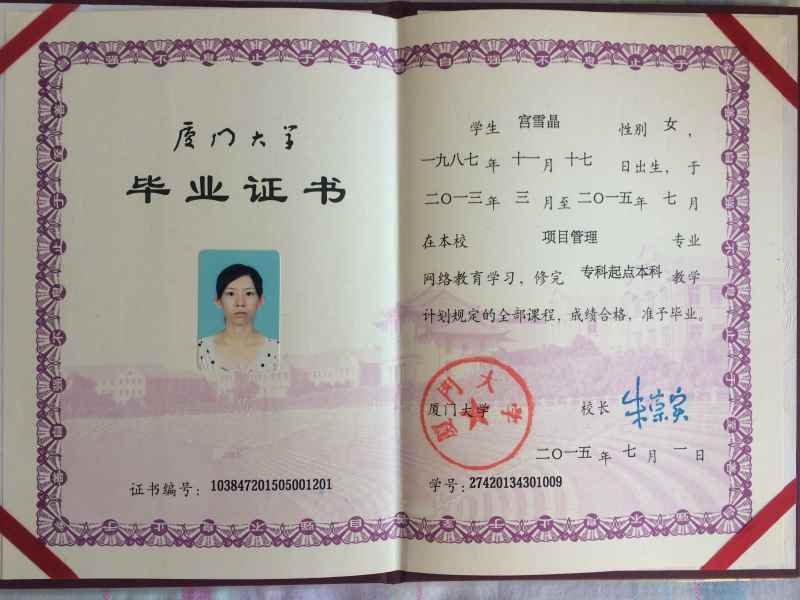 厦门大学
毕业证书
证书编号：103847201505001201
学生 宫雪晶 性别 女，
一九八七年 十一月 十七日出生，于
二〇一三年 三 月至 二〇一五年 七 月
在本校 项目管理 专业
网络教育学习，修完 专科起点本科 教学
计划规定的全部课程，成绩合格，准予毕业。
厦门大学
厦门大学 校长 朱崇实
二〇一五年 七 月 一 日
学号：27420134301009